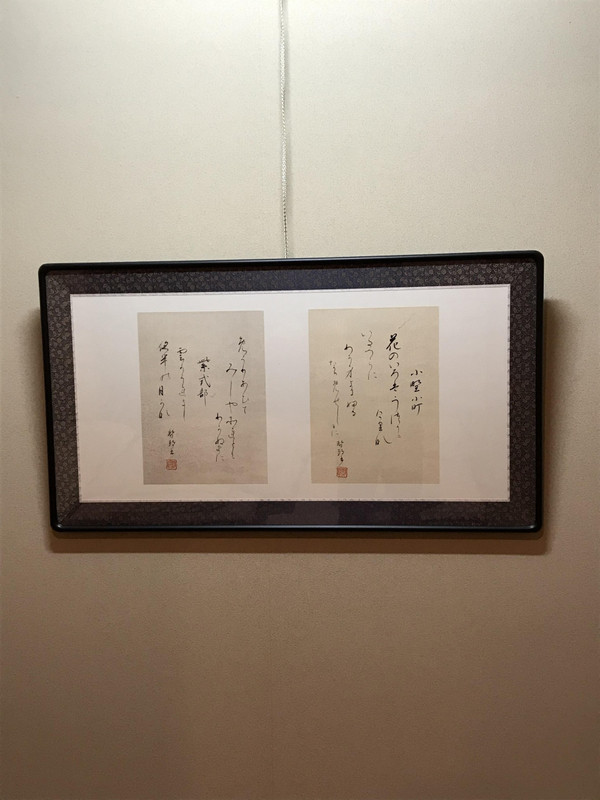 小野小町
花のいろはうつり
けりな
いたつらに
わか身よにふる
なかめせしまに
めくりあひて
みしやそれとも
わかぬまに
紫式部
雲かくれにし
夜半の月かな